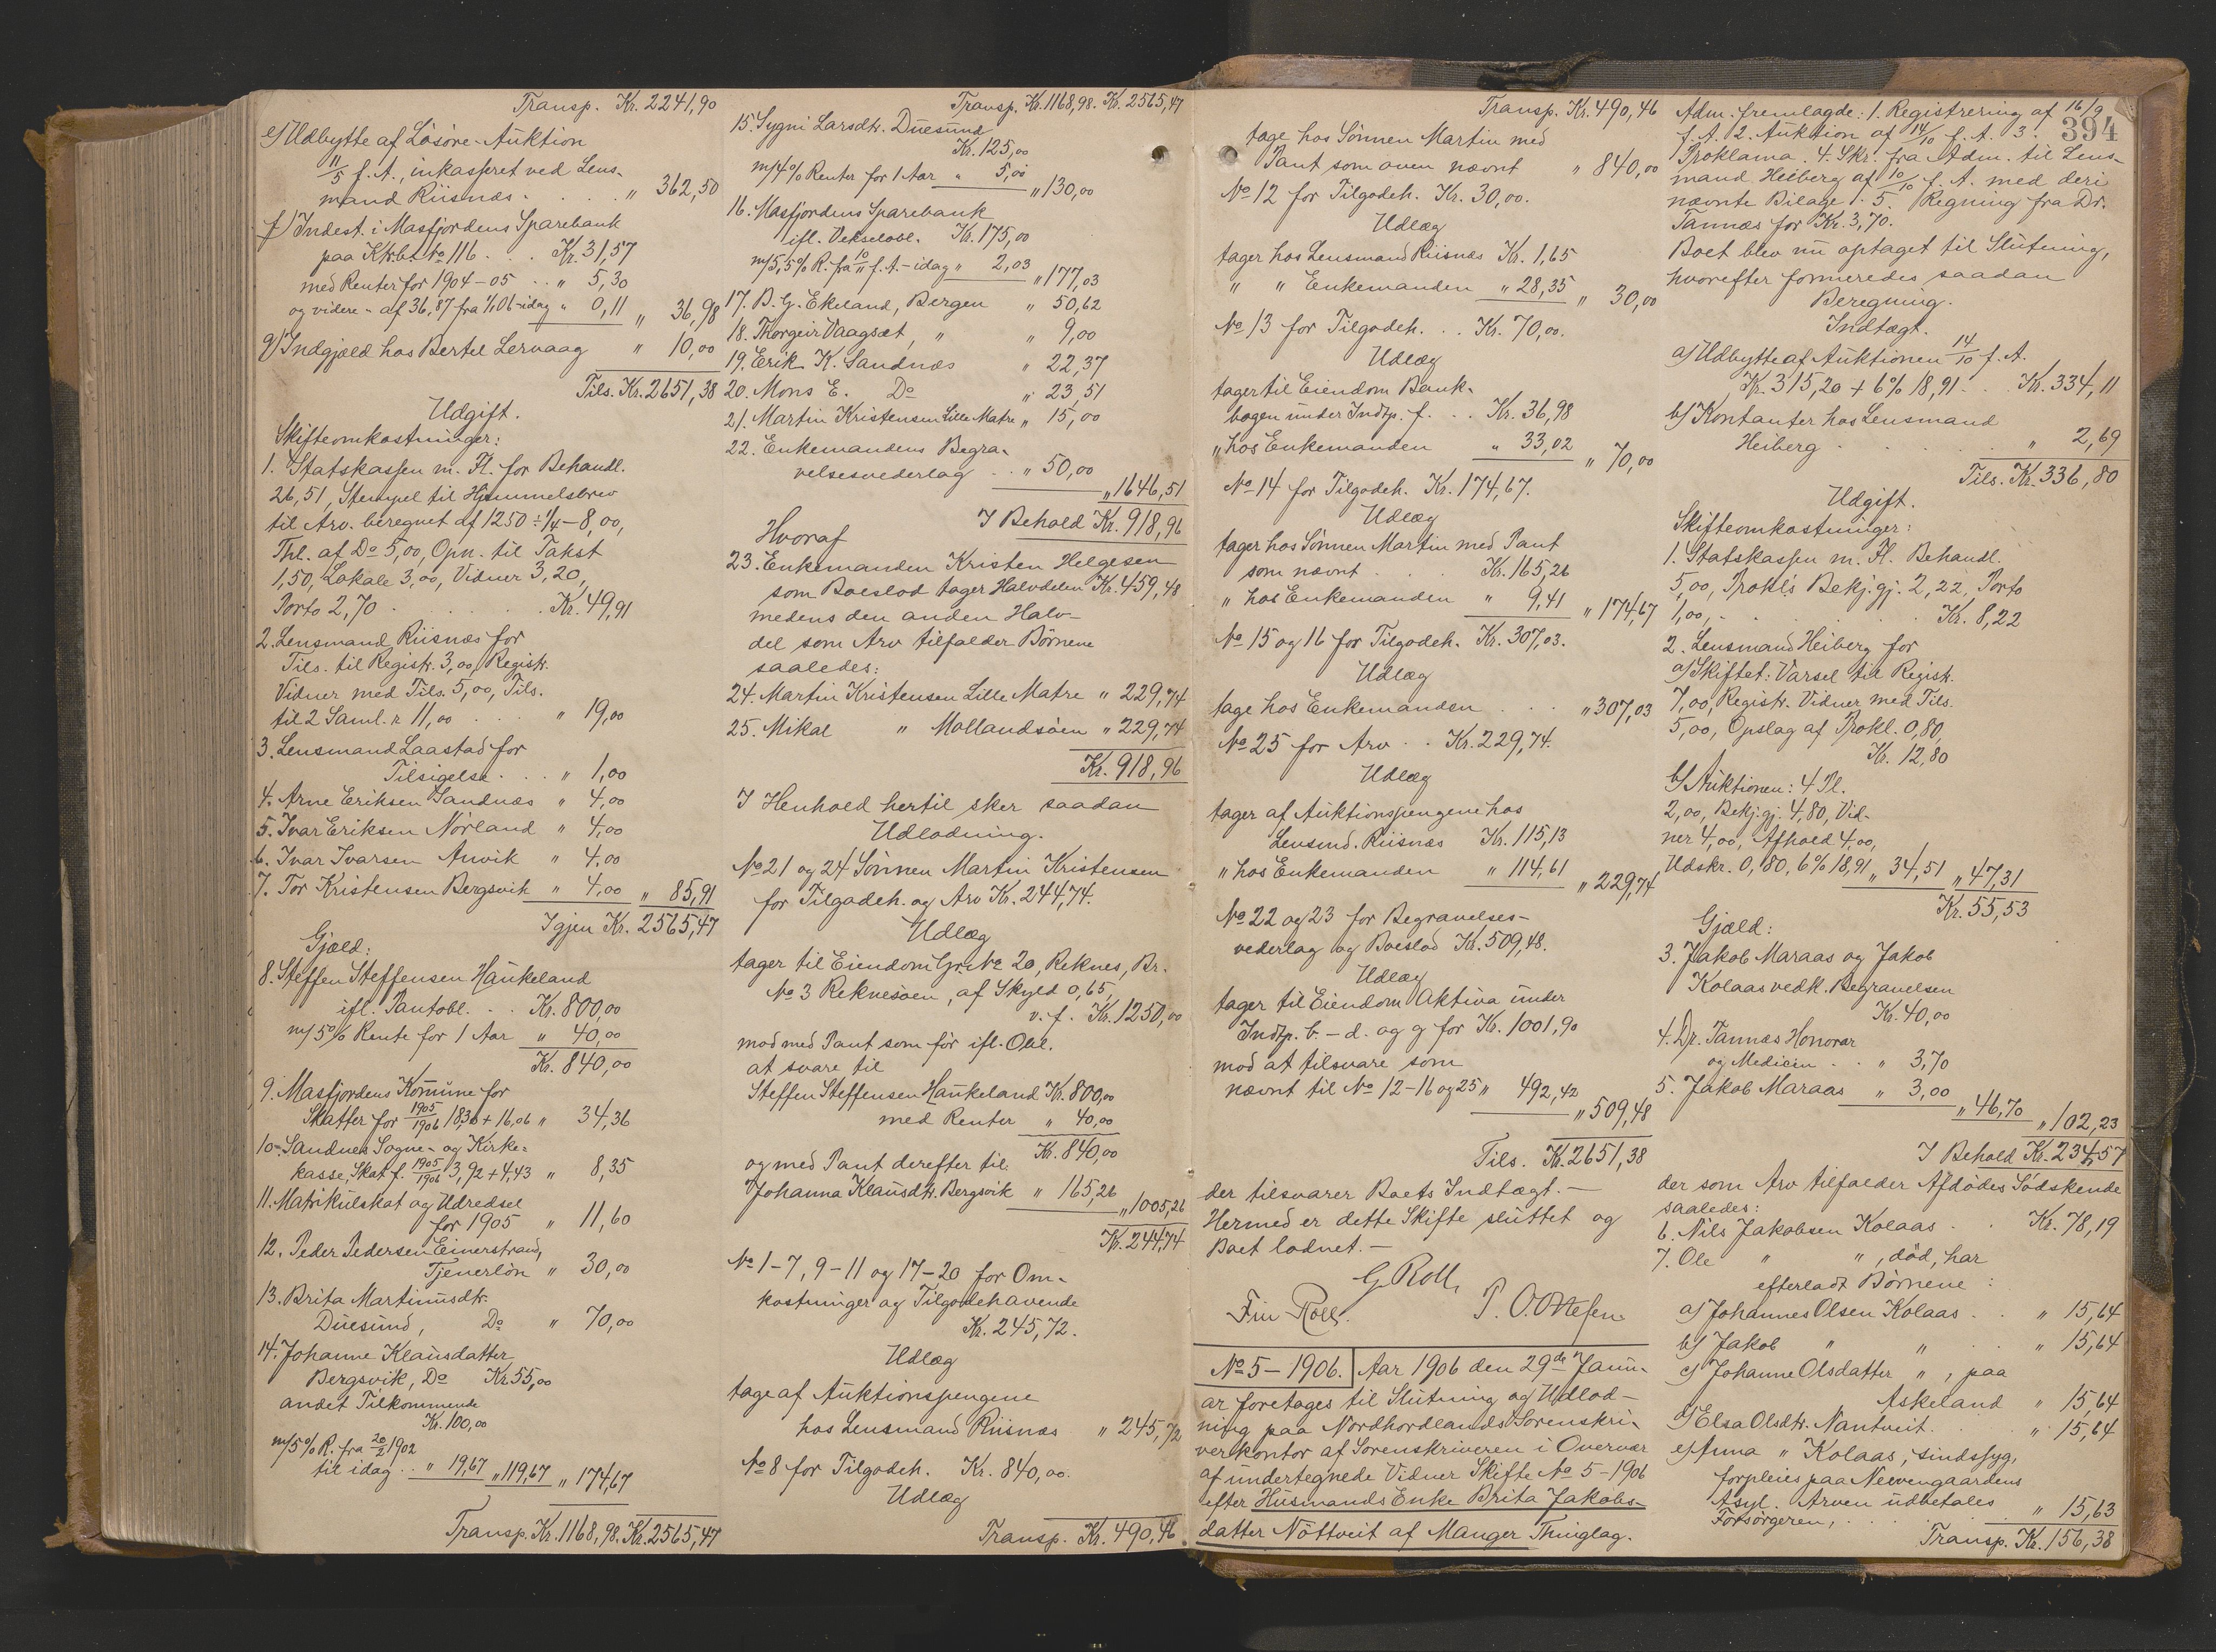 Transp. Kr. 2241,90
e) Udbytte af Lösöre-Auktion
11/5 f. A., inkasseret ved Lens-
mand Riisnæs . . . . " 362,50
f) Indest. i Masfjordens Sparebank
paa Ktrbl. No 116 . . . Kr. 31,57
med Renter for 1904-05 . . " 5,30
og videre - af 36,87 fra 1/1 06-idag " 0,11 " 36,98
g) Indgjæld hos Bertel Lervaag " 10,00
Tils. Kr. 2651,38
Udgift.
Skifteomkostninger:
1. Statskassen m. Fl. for Behandl.
26,51, Stempel til Hjemmelsbrev
til Arv. beregnet af 1250 ÷ 1/4 - 8,00,
Thl. af Do 5,00, Opn. til Takst
1,50, Lokale 3,00, Vidner 3,20,
Porto 2,70 . . . . . . Kr. 49,91
2. Lensmand Riisnæs for
Tils. til Registr. 3,00, Registr.
Vidner med Tils. 5,00, Tils.
til 2 Saml. à 11,00 . . . " 19,00
3. Lensmand Laastad for
Tilsigelse . . . " 1,00
4. Arne Eriksen Sandnæs " 4,00
5. Ivar Eriksen Nörland " 4,00
6. Ivar Ivarsen Anvik " 4,00
7. Tor Kristensen Bergsvik " 4,00 " 85,91
Igjen Kr. 2565,47
Gjæld:
8. Steffen Steffensen Haukeland
ifl. Pantobl. . . Kr. 800,00
m/5% Rente for 1 Aar " 40,00
Kr. 840,00
9. Masfjordens Komune for
Skatter for 1905/1906 18,30 + 16,06 " 34,36
10. Sandnes Sogne- og Kirke-
kasse, Skat f. 1905/1906 3,92 + 4,43 " 8,35
11. Matrikulskat og Udredsel
for 1905 " 11,60
12. Peder Pedersen Einerstrand,
Tjenerlön " 30,00
13. Brita Martinusdtr.
Duesund, Do " 70,00
14. Johanne Klausdatter
Bergsvik, Do Kr. 55,00
andet Tilkommende
Kr. 100,00
m/5% R. fra 20/2 1902
til idag . . " 19,67 " 119,67 " 174,67
Transp. Kr. 1168,98. Kr. 2565,47
Transp. Kr. 1168,98. Kr. 2565,47
15. Sygni Larsdtr. Duesund
Kr. 125,00
m/4% Renter for 1 Aar " 5,00 " 130,00
16. Masfjordens Sparebank
ifl. Vekselobl. Kr. 175,00
m/5,5% R. fra 10/11 f. A. - idag " 2,03 " 177,03
17. B. G. Ekeland, Bergen " 50,62
18. Thorgeir Vaagsæt, " " 9,00
19. Erik K. Sandnæs " 22,37
20. Mons E. Do " 23,51
21. Martin Kristensen Lille Matre " 15,00
22. Enkemandens Begra-
velsesvederlag . . " 50,00
" 1646,51
I Behold Kr. 918,96
Hvoraf
23. Enkemanden Kristen Helgesen
som Boeslod tager Halvdelen Kr. 459,48
medens den anden Halv-
del som Arv tilfalder Börnene
saaledes:
24. Martin Kristensen Lille Matre " 229,74
25. Mikal " Mollandsöen " 229,74
Kr. 918,96
I Henhold hertil sker saadan
Udlodning.
No 21 og 24 Sönnen Martin Kristensen
for Tilgodeh. og Arv Kr. 244,74.
Udlæg
tager til Eiendom Gr. No 20, Reknes, Br.
No 3 Reknesöen, af Skyld 0,65,
v. f. Kr. 1250,00
mod med Pant som för ifl. Obl.
at svare til
Steffen Steffensen Haukeland Kr. 800,00
med Renter " 40,00
Kr. 840,00
og med Pant derefter til
Johanna Klausdtr. Bergsvik " 165,26
" 1005,26
Kr. 244,74
No 1-7, 9-11 og 17-20 for Om-
kostninger og Tilgodehavende
Kr. 245,72.
Udlæg
tage af Auktionspengene
hos Lensmand Riisnæs " 245,72
No 8 for Tilgodeh. Kr. 840,00.
Udlæg
Transp. Kr. 490,46
Transp. Kr. 490,46
tage hos Sönnen Martin med
Pant som oven nævnt " 840,00
No 12 for Tilgodeh. Kr. 30,00.
Udlæg
tager hos Lensmand Riisnæs Kr. 1,65
" " Enkemanden " 28,35 " 30,00
No 13 for Tilgodeh. . . Kr. 70,00.
Udlæg
tager til Eiendom Bank-
bogen under Indtp. f. . . Kr. 36,98
" hos Enkemanden " 33,02 " 70,00
No 14 for Tilgodeh. Kr. 174,67.
Udlæg
tager hos Sönnen Martin med Pant
som nævnt . . Kr. 165,26
" hos Enkemanden " 9,41 " 174,67
No 15 og 16 for Tilgodeh. Kr. 307,03.
Udlæg
tage hos Enkemanden . . . " 307,03
No 25 for Arv . . Kr. 229,74.
Udlæg
tager af Auktionspengene hos
Lensmd. Riisnæs Kr. 115,13
" hos Enkemanden " 114,61
" 229,74
No 22 og 23 for Begravelses-
vederlag og Boeslod Kr. 509,48.
Udlæg
tager til Eiendom Aktiva under
Indtp. b - d. og g for Kr. 1001,90
mod at tilsvare som
nævnt til No 12-16 og 25 " 492,42
" 509,48
Tils. Kr. 2651,38
der tilsvarer Boets Indtægt. -
Hermed er dette Skifte sluttet og
Boet lodnet. -
G Roll
Fin Roll. P. O. Ottesen
No 5 - 1906. Aar 1906 den 29de Janu-
ar foretages til Slutning og Udlod-
ning paa Nordhordlands Sorenskri-
verkontor af Sorenskriveren i Overvær
af undertegnede Vidner Skifte No 5-1906
efter Husmands Enke Brita Jakobs-
datter Nöttveit af Manger Thinglag.
394
Adm. fremlagde: 1. Registrering af 16/9
f. A. 2. Auktion af 14/10 f. A. 3.
Proklama. 4. Skr. fra Adm. til Lens-
mand Heiberg af 10/10 f. A. med deri
nævnte Bilage. 5. Regning fra Dr.
Tannæs for Kr. 3,70.
Boet blev nu optaget til Slutning,
hvorefter formeredes saadan
Beregning.
Indtægt.
a) Udbytte af Auktionen 14/10 f. A.
Kr. 315,20 + 6% 18,91 . . Kr. 334,11
b) Kontanter hos Lensmand
Heiberg . . . . . " 2,69
Tils. Kr. 336,80
Udgift.
Skifteomkostninger:
1. Statskassen m. Fl. Behandl.
5,00, Prokl's Bekj.gj. 2,22, Porto
1,00, . . . . . . . Kr. 8,22
2. Lensmand Heiberg for
a) Skiftet: Varsel til Registr.
7,00, Registr. Vidner med Tils.
5,00, Opslag af Prokl. 0,80,
Kr. 12,80
b) Auktionen: 4 Pl.
2,00, Bekj.gj. 4,80, Vid-
ner 4,00, Afhold 4,00,
Udskr. 0,80, 6% 18,91 " 34,51 " 47,31
Kr. 55,53
Gjæld:
3. Jakob Maraas og Jakob
Kolaas vedk. Begravelsen
Kr. 40,00
4. Dr. Tannæs Honorar
og Medicin . . " 3,70
5. Jakob Maraas " 3,00
" 46,70 " 102,23
I Behold Kr. 234,57
der som Arv tilfalder Afdödes Södskende
saaledes:
6. Nils Jakobsen Kolaas . . Kr. 78,19
7. Ole " " , död, har
efterladt Börnene :
a) Johannes Olsen Kolaas . . " 15,64
b) Jakob " " . . " 15,64
c) Johanne Olsdatter " , paa
Askeland " 15,64
d) Elsa Olsdtr. Nantveit . . " 15,64
e) Anna " Kolaas, sindssyg,
forpleies paa Neevengaardens
Asyl. Arven udbetales
Forsörgeren, . . . . . " 15,63
Transp. Kr. 156,38